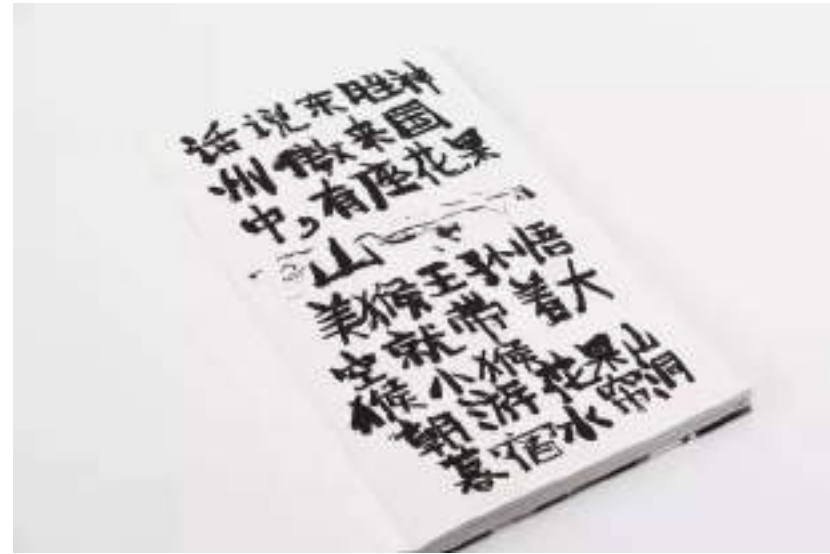 话说东胜神
州傲来国
中，有座花果
山
美猴王孙悟
空就带着大
猴小猴
朝游花果山
暮宿水帘洞